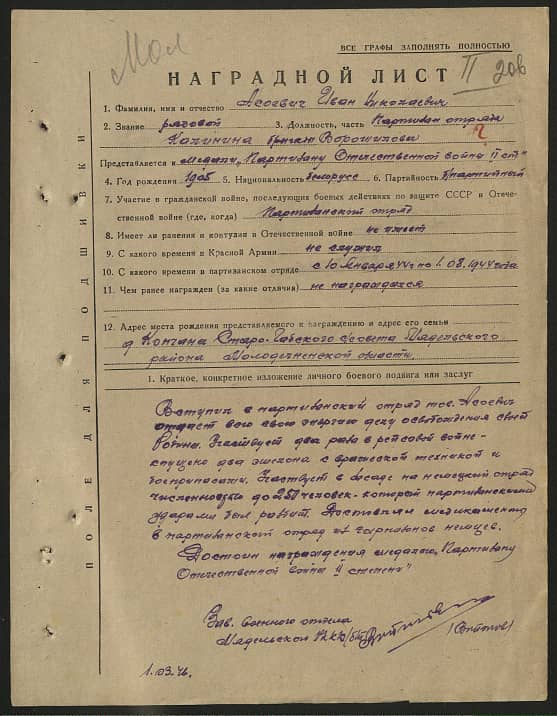 Мол
ВСЕ ГРАФЫ ЗАПОЛНЯТЬ ПОЛНОСТЬЮ
НАГРАДНОЙ ЛИСТ
II 206
1. Фамилия, имя и отчество Асоевич Иван Николаевич
2. Звание рядовой 3. Должность, часть Партизан отряда
Калинина бригады Ворошилова
Представляется к медали „Партизану Отечественной война II ст"
4. Год рождения 1905 5. Национальность белорусс 6. Партийность б/партийный
7. Участие в гражданской войне, последующих боевых действиях по защите СССР и Отече-
ственной войне (где, когда) Партизанский отряд
8. Имеет ли ранения и контузии в Отечественной войне не имеет
9. С какого времени в Красной Армии не служил
10. С какого времени в партизанском отряде с 10 января 44 г по 1.08.1944 года
11. Чем ранее награжден (за какие отличия) не награждался
12. Адрес места рождения представляемого к награждению и адрес его семьи
д Кончана Старо-Габского с/совета Мядельского
района Молодечненской области.
1. Краткое, конкретное изложение личного боевого подвига или заслуг
Вступив в партизанский отряд тов. Асоевич
отдает всю свою энергию делу освобождения своей
Родины. Участвует два раза в рельсовой войне-
спущено два эшелона с вражеской техникой и
боеприпасами. Участвует в засаде на немецкий отряд
численностью до 250 человек-который партизанскими
ударами был разбит. Доставлял медикаменты
в партизанский отряд из гарнизонов немцев.
Достоин награждения медалью „Партизану
Отечественной война II степени"
Зав. военного отдела
Мядельского РК КП(б)Б
1.03.46.
ПОЛЕ ДЛЯ ПОДШИВКИ